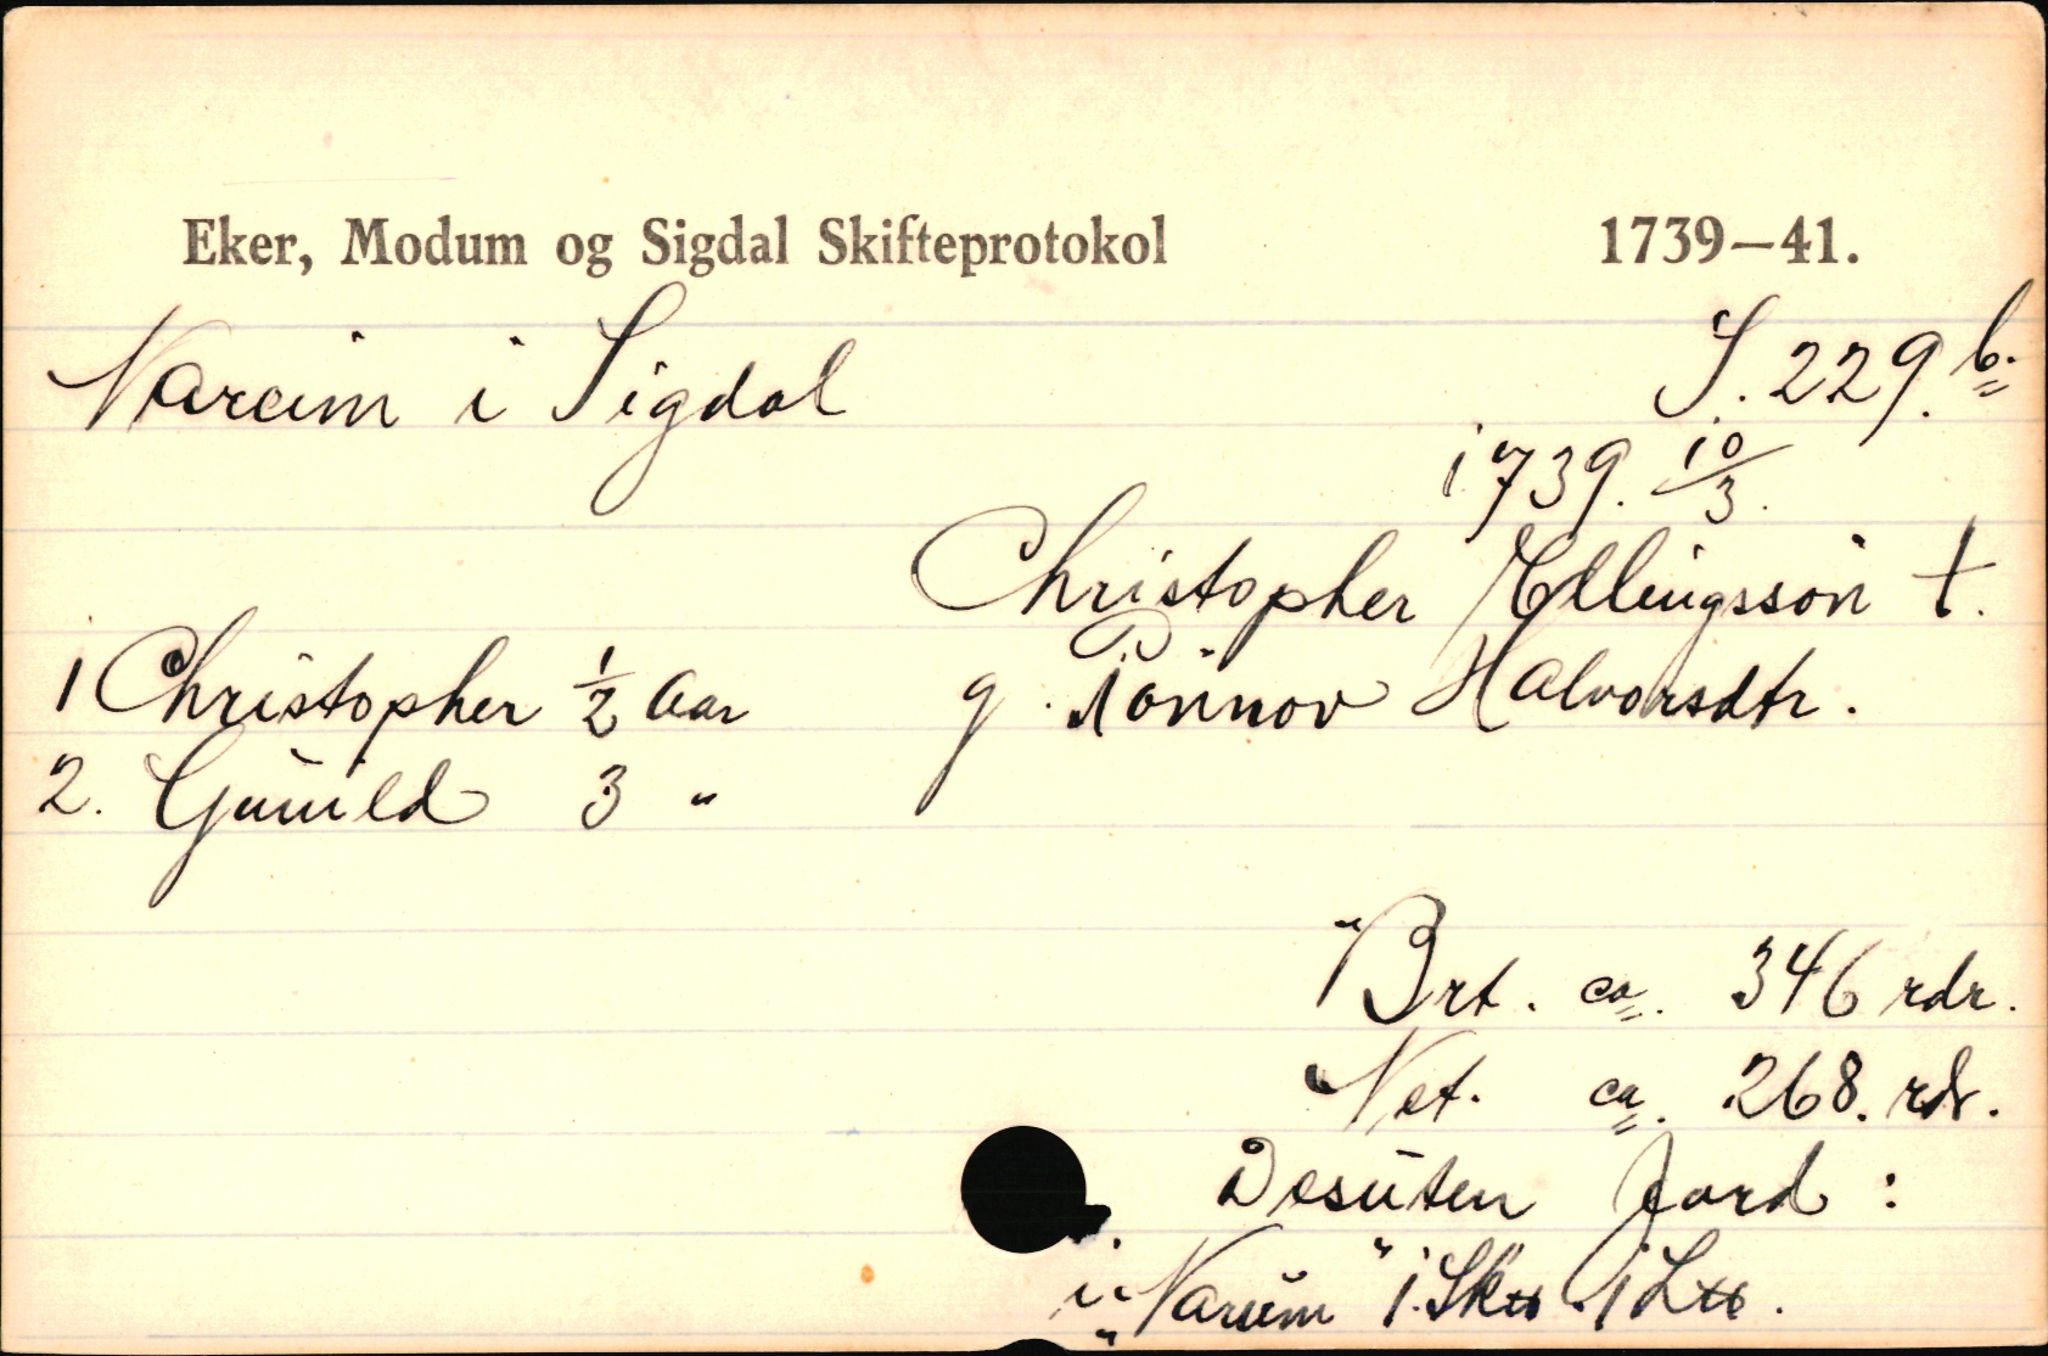 Eker, Modum og Sigdal Skifteprotokol 1739–41.
Nareim i Sigdal S. 229. b.
1739. 10/3.
Christopher Ellingssøn †.
1 Christopher 1/2 Aar g. Tønnov Halvorsdtr.
2. Gunild 3 "
Brt. ca. 346 rdr.
Net. ca. 268. rdr.
Desuten Jord:
i „Narum" 1. Sk℔. 1 L℔.